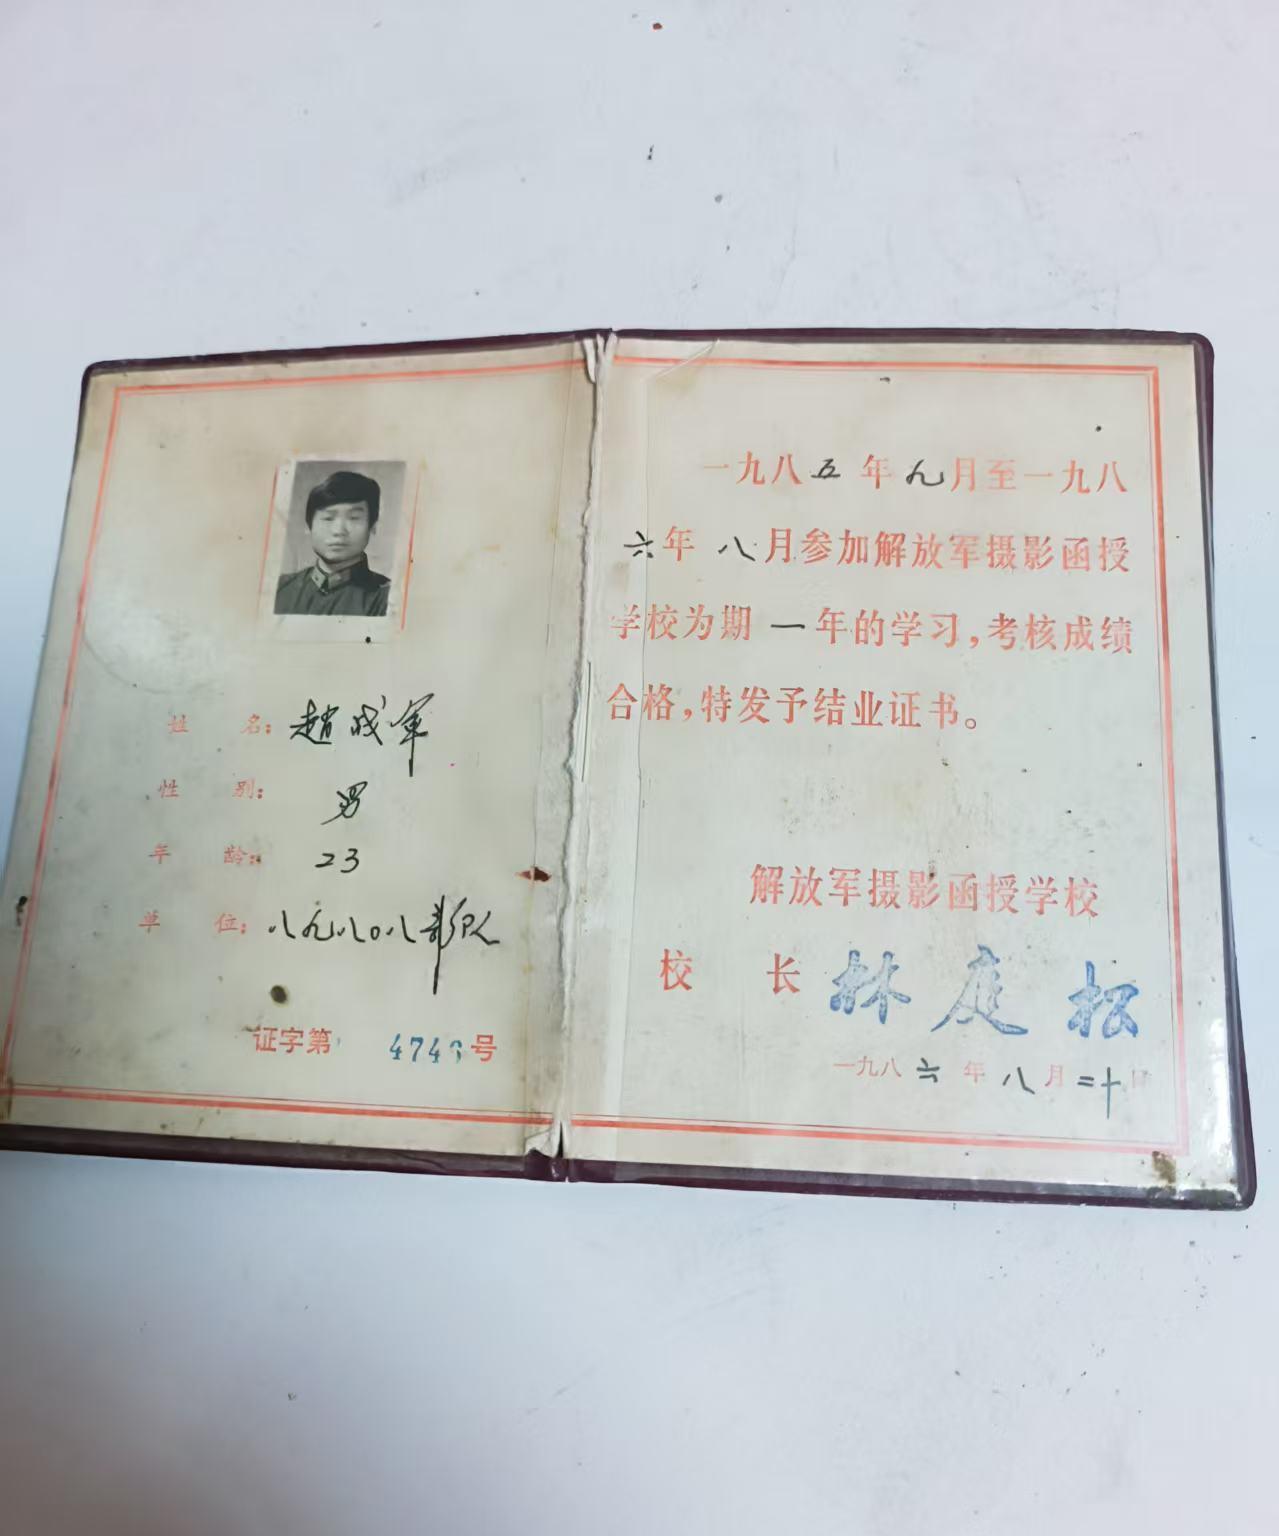 姓 名：趙成军
性 别：男
年 龄：23
单 位：八九八〇八部队
证字第 474 号
一九八五年九月至一九八
六年 八月参加解放军摄影函授
学校为期 一年的学习，考核成绩
合格，特发予结业证书。
解放军摄影函授学校
校 长 林庭松
一九八六年八月二十日